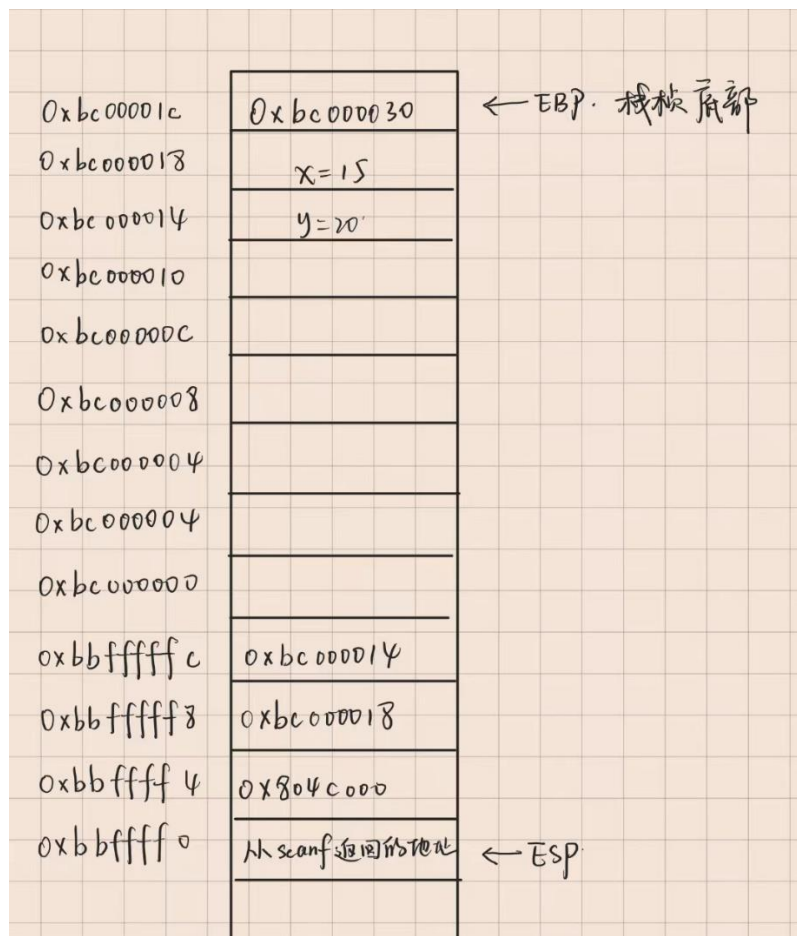 0xbc00001c 0xbc000030 ← EBP. 栈桢底部
0xbc000018 x=15
0xbc000014 y=20
0xbc000010
0xbc00000c
0xbc000008
0xbc000004
0xbc000004
0xbc000000
0xbbfffffc 0xbc000014
0xbbfffff8 0xbc000018
0xbbffff4 0x804c000
0xbbffff0 从scanf返回的地址 ← ESP